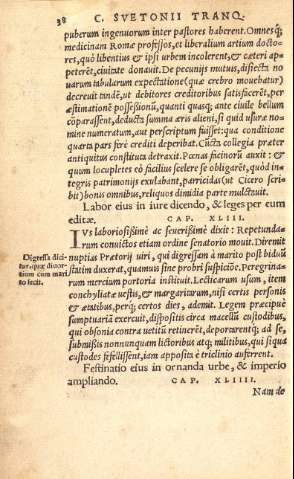 38 C. SVETONII TRANQ.
puberum ingenuorum inter pastores haberent. Omnesq́;
medicinam Romæ professos, et liberalium artium docto-
res, quò libentius & ipsi urbem incolerent, & cæteri ap-
peterēt, ciuitate donauit. De pecunijs mutuis, disiecta no
uarum tabularum expectatione (quæ crebro mouebatur)
decreuit tandē, ut debitores creditoribus satisfacerēt, per
æstimationē possessionū, quanti quasq; ante ciuile bellum
cōparassent, deducta summa æris alieni, si quid usuræ no-
mine numeratum, aut perscriptum fuisset: qua conditione
quarta pars ferè crediti deperibat. Cūcta collegia præter
antiquitus constituta detraxit. Pœnas facinorū auxit: &
quum locupletes eò facilius scelere se obligarēt, quòd in-
tegris patrimonijs exulabant, parricidas (ut Cicero scri-
bit) bonis omnibus, reliquos dimidia parte mulctauit.
Labor eius in iure dicendo, & leges per eum
editæ. CAP. XLIII.
IVs laboriosissimè ac seuerissimè dixit: Repetunda-
rum conuictos etiam ordine senatorio mouit. Diremit
nuptias Prætorij uiri, qui digressam à marito post biduū
statim duxerat, quamuis sine probri suspiciōe. Peregrina-
rum mercium portoria instituit. Lecticarum usum, item
conchyliatæ uestis, & margaritarum, nisi certis personis
& ætatibus, perq́; certos dies, ademit. Legem præcipuè
sumptuariā exercuit, dispositis circa macellū custodibus,
qui obsonia contra uetitū retinerēt, deportarentq́; ad se,
submissis nonnunquam lictoribus atq; militibus, qui si qua
custodes fefellissent, iam apposita è triclinio auferrent.
Digressā dici-
tur, quæ diuor-
tium cum mari-
to fecit.
Festinatio eius in ornanda urbe, & imperio
ampliando. CAP. XLIIII.
Nam de